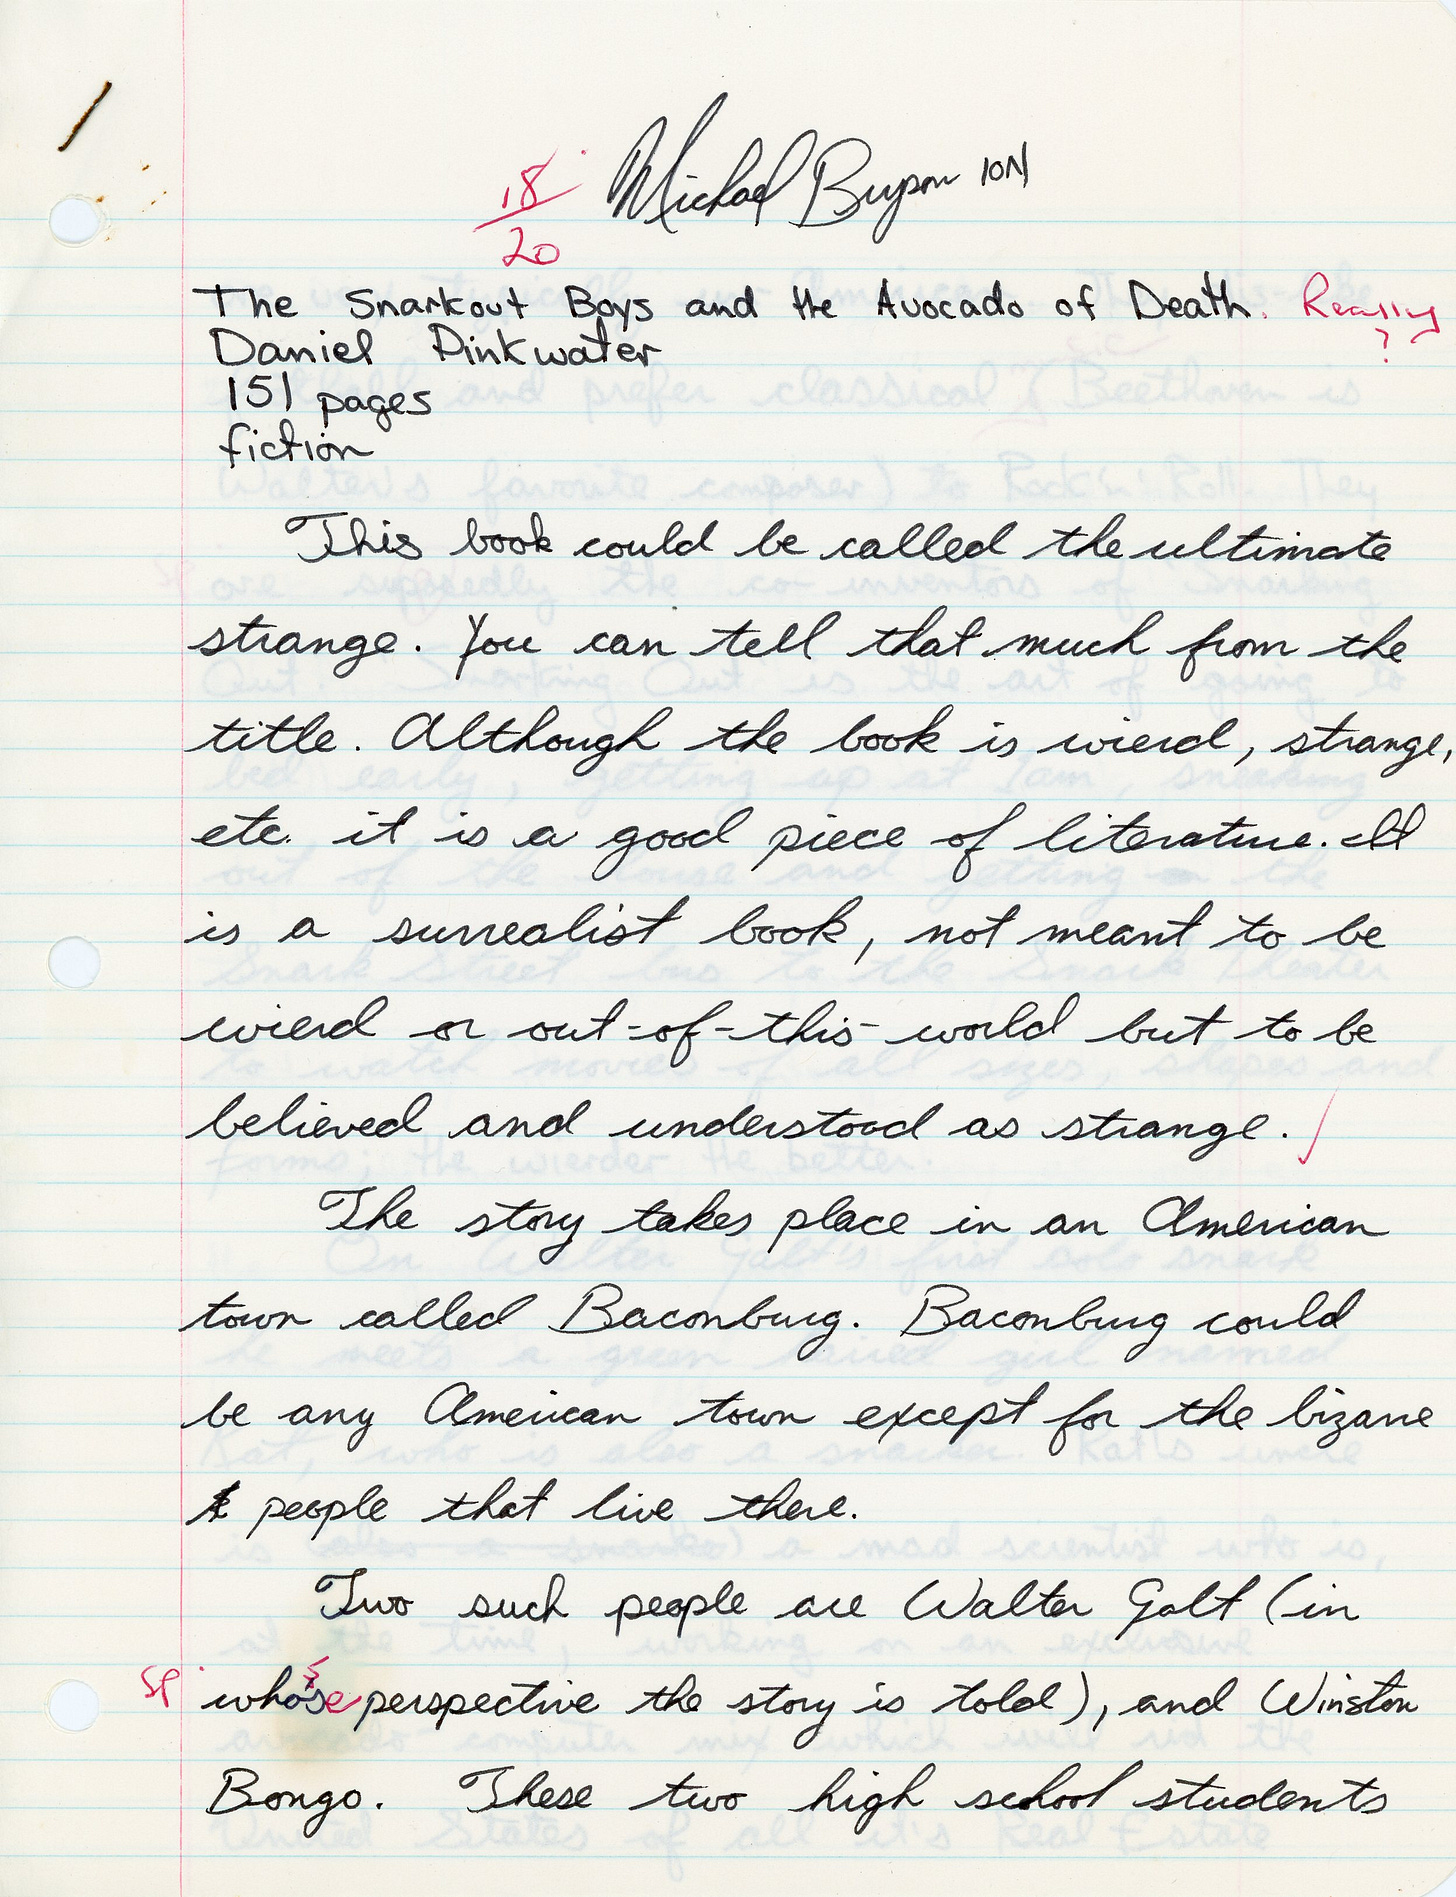 18/20 Michael Bryson 10N
The Snarkout Boys and the Avocado of Death. Really
?
Daniel Pinkwater
151 pages
fiction
This book could be called the ultimate
strange. You can tell that much from the
title. Although the book is wierd, strange,
etc. it is a good piece of literature. It
is a surrealist book, not meant to be
wierd or out-of-this-world but to be
believed and understood as strange.
The story takes place in an American
town called Baconburg. Baconburg could
be any American town except for the bizarre
people that live there.
Two such people are Walter Galt (in
sp whose perspective the story is told), and Winston
Bongo. These two high school students